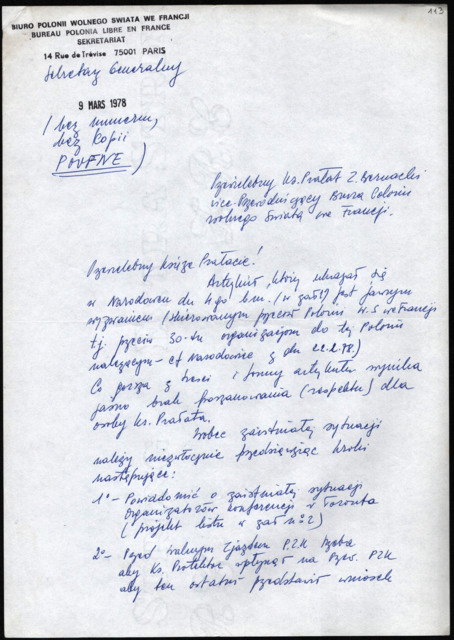 113
BIURO POLONII WOLNEGO SWIATA WE FRANCJI
BUREAU POLONIA LIBRE EN FRANCE
SEKRETARIAT
14 Rue de Trévise 75001 PARIS
Sekretarz Generalny
9 MARS 1978
/ bez numeru,
bez kopii
POUFNE )
Przewielebny Ks. Prałat Z. Bernacki
vice-Przewodniczący Biura Polonii
wolnego świata we Francji.
Przewielebny Księże Prałacie!
Artykuł, który ukazał się
w Narodowcu dn 4go b.m. (w zał 1) jest jawnym
wyzwaniem skierowanym przeciw Polonii W. S we Francji
tj. przeciw 30-tu organizacjom do tej Polonii
należącym - cf Narodowiec z dn 22.2.78.)
Co gorsza z treści i formy artykułu wynika
jasno brak poszanowania (respektu) dla
osoby Ks. Prałata.
Wobec zaistniałej sytuacji
należy niezwłocznie przedsięwziąć kroki
następujące:
1° - Powiadomić o zaistniałej sytuacji
Organizatorów Konferencji w Toronto
( projekt listu w zał n° 2 )
2° - Przed walnym Zjazdem P.Z.K. trzeba
aby Ks. Protektor wpłynął na Prez. PZK
aby ten ostatni przedstawił wniosek